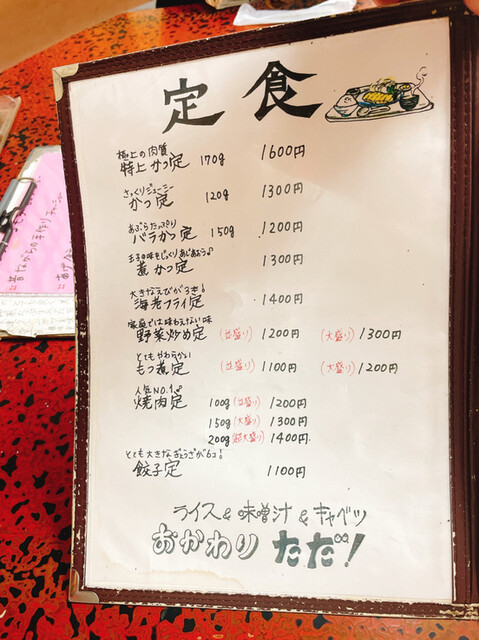 定食
極上の肉質
特上かつ定 170g 1600円
さっくりジューシー
かつ定 120g 1300円
あぶらたっぷり
バラかつ定 150g 1200円
玉子の味をじっくりあじあおう♪
煮かつ定 1300円
大きなえびが3き!
海老フライ定 1400円
家庭では味わえない味
野菜炒め定 (並盛り) 1200円 (大盛り) 1300円
とてもやわらかい
もつ煮定 (並盛り) 1100円 (大盛り) 1200円
人気NO.1
焼肉定 100g (並盛り) 1200円
150g (大盛り) 1300円
200g (超大盛り) 1400円
とても大きなぎょうざが6コ!
餃子定 1100円
ライス&味噌汁&キャベツ
おかわりただ!
昔ながらの手作り